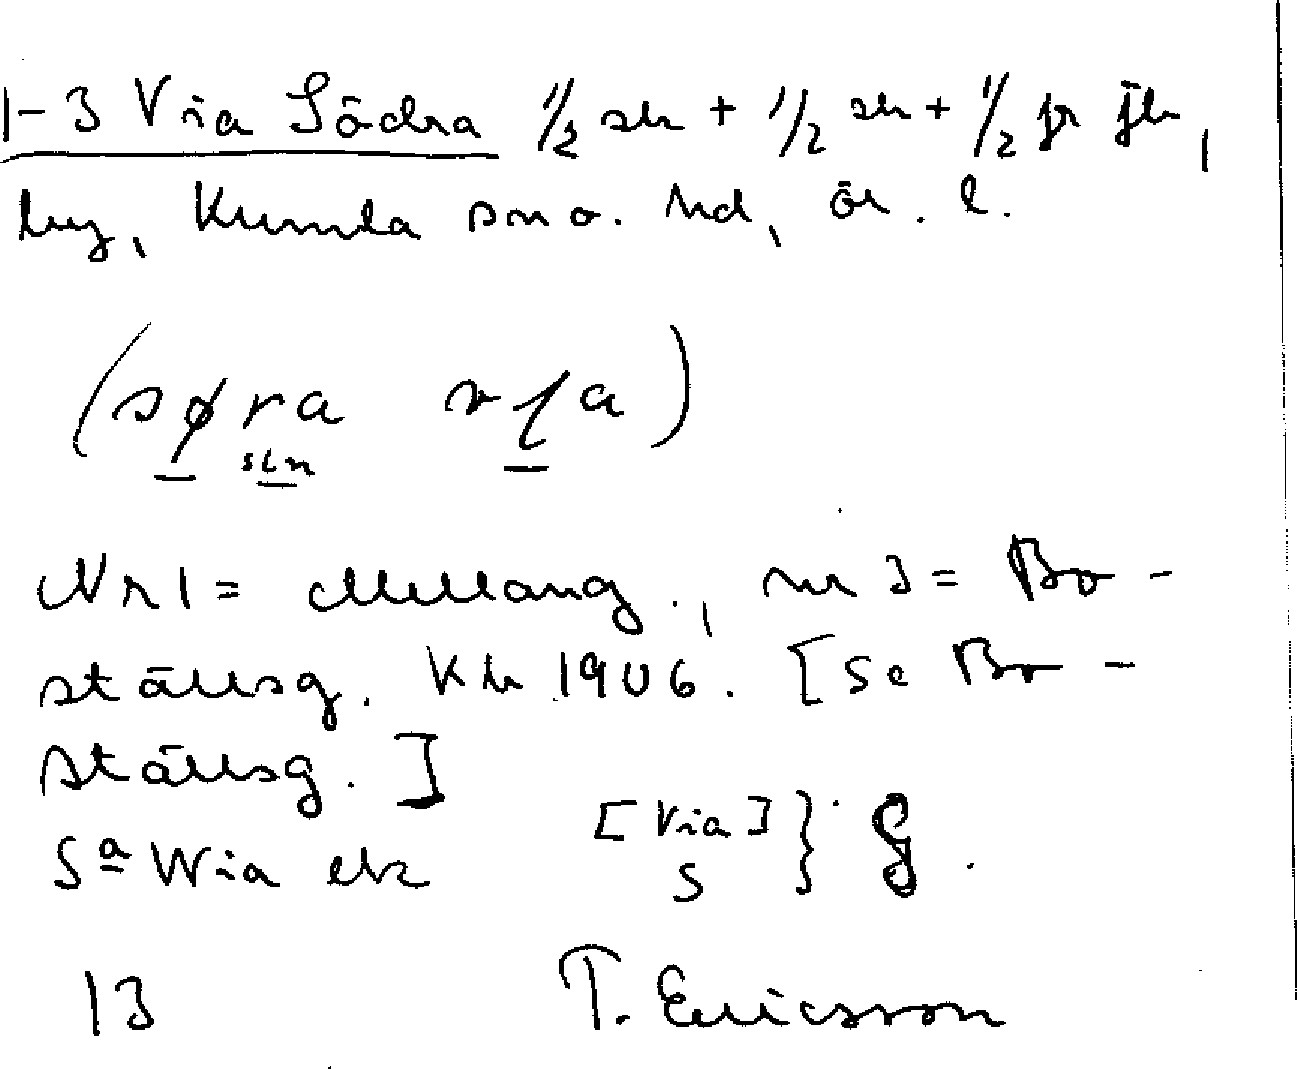 1-3 Via Södra 1/2 sk + 1/2 sk + 1/2 fr jb,
by, Kumla sn o. hd, ör. l.
(søra via)
Nr 1 = Mellang., nr 3 = Bo-
ställsg. Kb 1906. [Se Bo-
ställsg.]
Sa Wia ek [Via] } G.
S
13 T. Ericsson